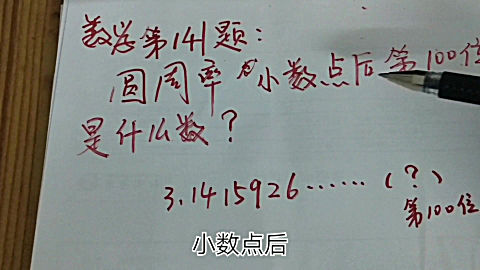 数学第141题：
圆周率的小数点后第100位
是什么数？
3.1415926……（？）
第100位
小数点后